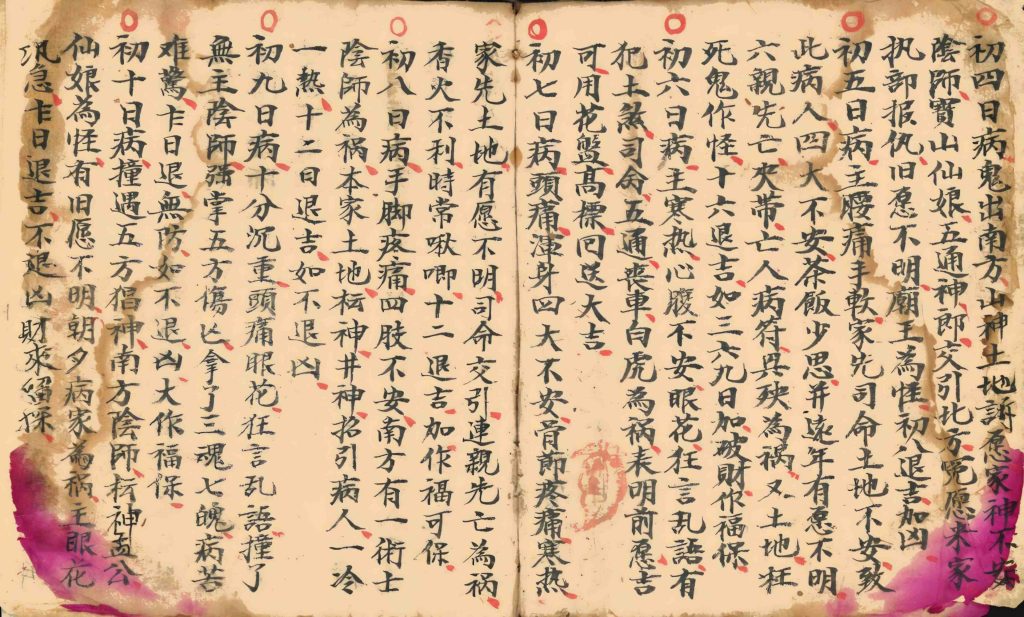 初四日病鬼出南方山神土地訴愿家神不安
陰師寳山仙娘五通神郎交引北方寃愿来家
执部报仇旧愿不明廟王為怪初八退吉加凶
初五日病主腰痛手軟家先司命土地不安致
此病人四大不安茶飯少思并遠年有愿不明
六親先亡夾帶亡人病符呉殃為禍又土地枉
死鬼作怪十六退吉如三六九日加破財作福保
初六日病主寒热心腹不安眼花狂言乱語有
犯土煞司命五通喪車白虎為祸表明前愿吉
可用花盤髙標囘送大吉
初七日病頭痛渾身四大不安骨節疼痛寒热
家先土地有愿不明司命交引連親先亡為祸
香火不利時常啾唧十二退吉加作福可保
初八日病手脚疼痛四肢不安南方有一術士
陰師為祸本家土地枟神井神招引病人一冷
一熱十二日退吉如不退凶
初九日病十分沉重頭痛眼花狂言乱語撞了
無主陰師强掌五方傷亡拿了三魂七魄病苦
难驚卞日退無防如不退凶大作福保
初十日病撞遇五方猖神南方陰師枟神孟公
仙娘為怪有旧愿不明朝夕病家為祸主眼花
急卞日退吉不退凶財來